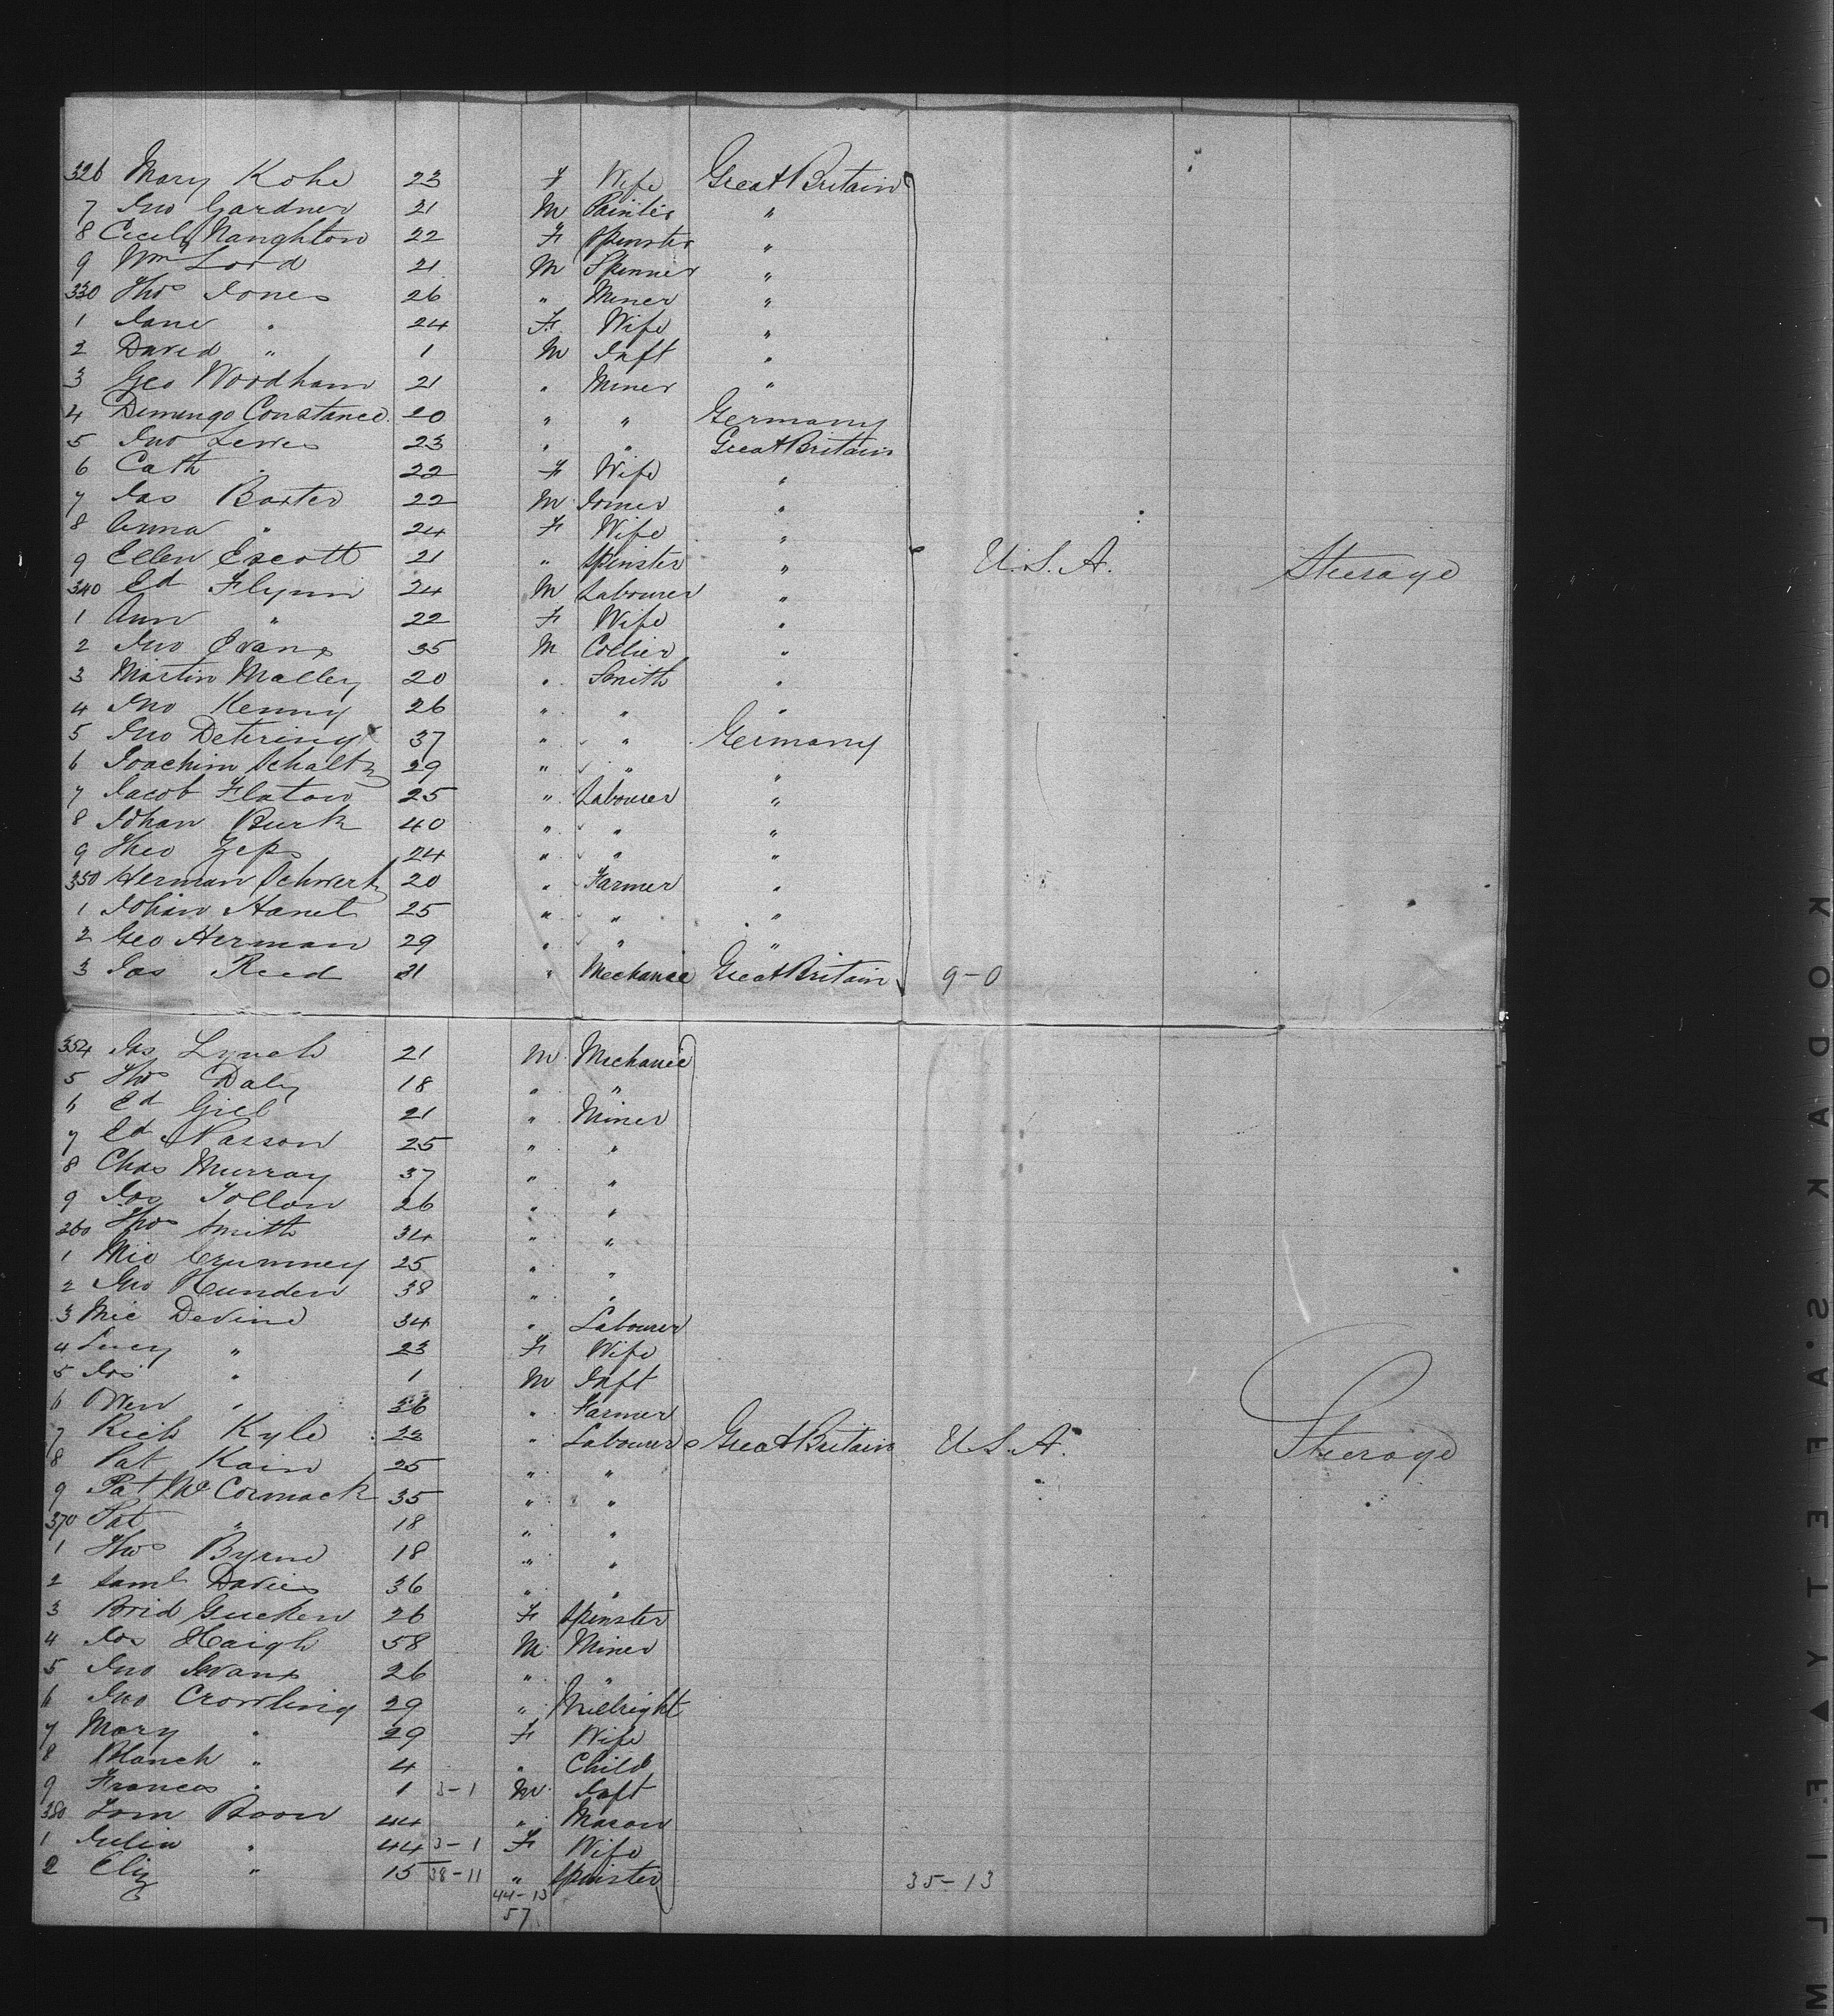 326 Mary Kohe 23 F Wife Great Britain
7 Jno Gardner 21 M Painter "
8 Cecily Naughton 22 F Spinster "
9 Wm Lord 21 M Spinner "
330 Thos Jones 26 " Miner "
1 Jane " 24 F Wife "
2 David " 1 M Inft "
3 Geo Woodham 21 " Miner "
4 Demingo Constance 20 " " Germany
5 Jno Lewes 23 " " Great Britain
6 Cath " 22 F Wife "
7 Jas Baxter 22 M Joiner "
8 Anna " 24 F Wife "
9 Ellen Escott 21 " Spinster " U.S.A. Steerage
340 Ed Flynn 24 M Labourer "
1 Ann " 22 F Wife "
2 Jno Evans 35 M Collier "
3 Martin Malley 20 " Smith "
4 Jno Kenny 26 " " "
5 Jno Detering 37 " " Germany
6 Joachim Schaltz 29 " " "
7 Jacob Flatow 25 " Labourer "
8 Johan Burk 40 " " "
9 Theo Zeps 24 " " "
350 Herman Schwertz 20 " Farmer "
1 Johan Hanel 25 " " "
2 Geo Herman 29 " " "
3 Jas Reed 31 " Mechanic Great Britain 9-0
354 Jas Lynch 21 M Mechanic
5 Thos Daly 18 " "
6 Ed Giel 21 " Miner
7 Ed Nasson 25 " "
8 Chas Murray 37 " "
9 Jos Tollon 26 " "
360 Thos Smith 34 " "
1 Mic Crumney 25 " "
2 Jno Hunden 38 " "
3 Mic Devine 34 " Labourer
4 Lucy " 23 F Wife
5 Jos " 1 M Inft
6 Owen " 26 " Farmer
7 Rich Kyle 22 " Labourer Great Britain U.S.A. Steerage
8 Pat Kain 25 " "
9 Pat McCormack 35 " "
370 Pat " 18 " "
1 Thos Byrne 18 " "
2 Saml Davies 36 " "
3 Brid Gucken 26 F Spinster
4 Jos Haigh 58 M Miner
5 Jno Evans 26 " "
6 Jno Crowling 29 " Milright
7 Mary " 29 F Wife
8 Blanch " 4 " Child
9 Frances " 1 3-1 M Inft
380 Tom Boon 44 " Mason
1 Julia " 44 3-1 F Wife
2 Eliz " 15 38-11 " Spinster 35-13
44-13
57
KODAK SAFETY FILM